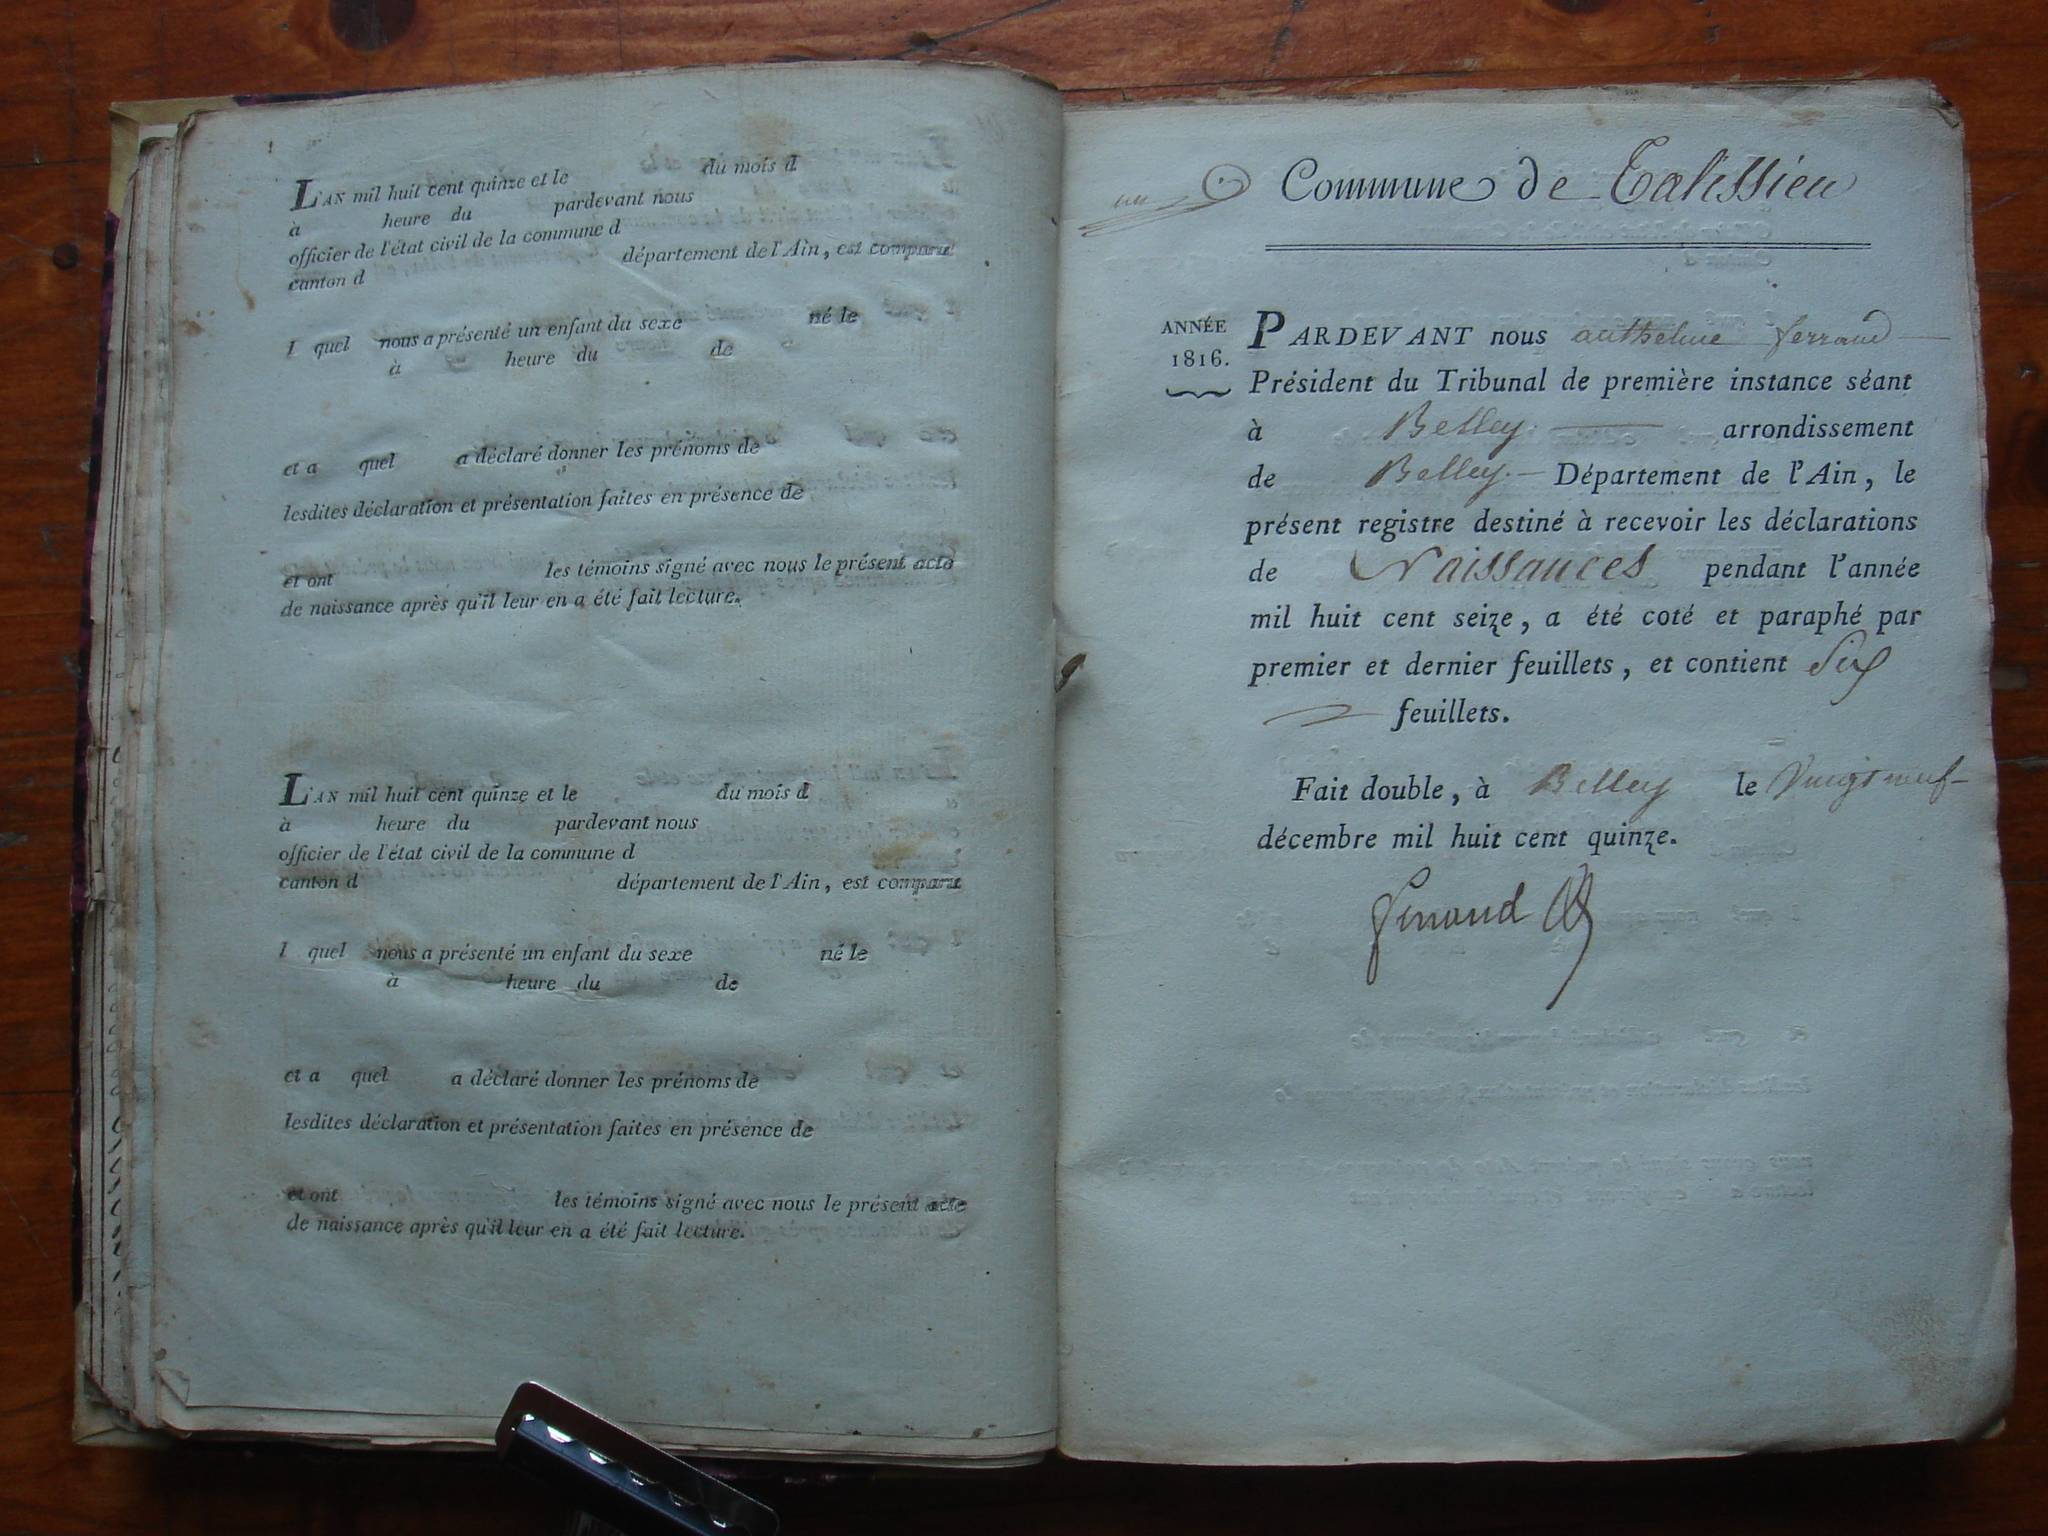 L'AN mil huit cent quinze et le du mois d
à heure du pardevant nous
officier de l'état civil de la commune d
canton d département de l'Ain, est comparu
l quel nous a présenté un enfant du sexe né le
à heure du de
et a quel a déclaré donner les prénoms de
lesdites déclaration et présentation faites en présence de
et ont les témoins signé avec nous le présent acte
de naissance après qu'il leur en a été fait lecture.
L'AN mil huit cent quinze et le du mois d
à heure du pardevant nous
officier de l'état civil de la commune d
canton d département de l'Ain, est comparu
l quel nous a présenté un enfant du sexe né le
à heure du de
et a quel a déclaré donner les prénoms de
lesdites déclaration et présentation faites en présence de
et ont les témoins signé avec nous le présent acte
de naissance après qu'il leur en a été fait lecture.
un
Commune de Talissieu
ANNÉE
1816.
PARDEVANT nous anthelme ferrand
Président du Tribunal de première instance séant
à Belley arrondissement
de Belley Département de l'Ain, le
présent registre destiné à recevoir les déclarations
de Naissances pendant l'année
mil huit cent seize, a été coté et paraphé par
premier et dernier feuillets, et contient Six
feuillets.
Fait double, à Belley le Vingt neuf
décembre mil huit cent quinze.